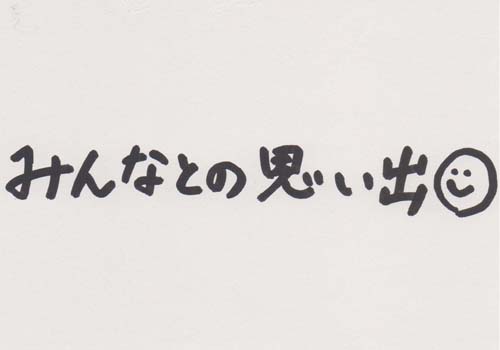 みんなとの思い出☺